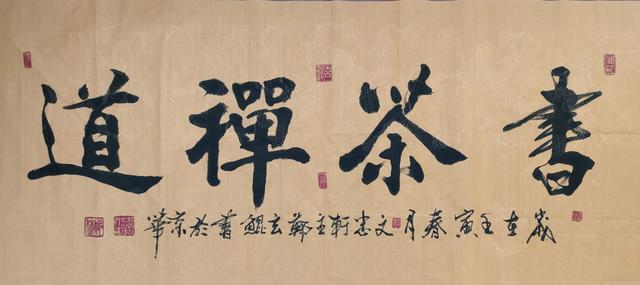 書茶禪道
歲在壬寅春月文忠軒主鄭玄鯤書於京華